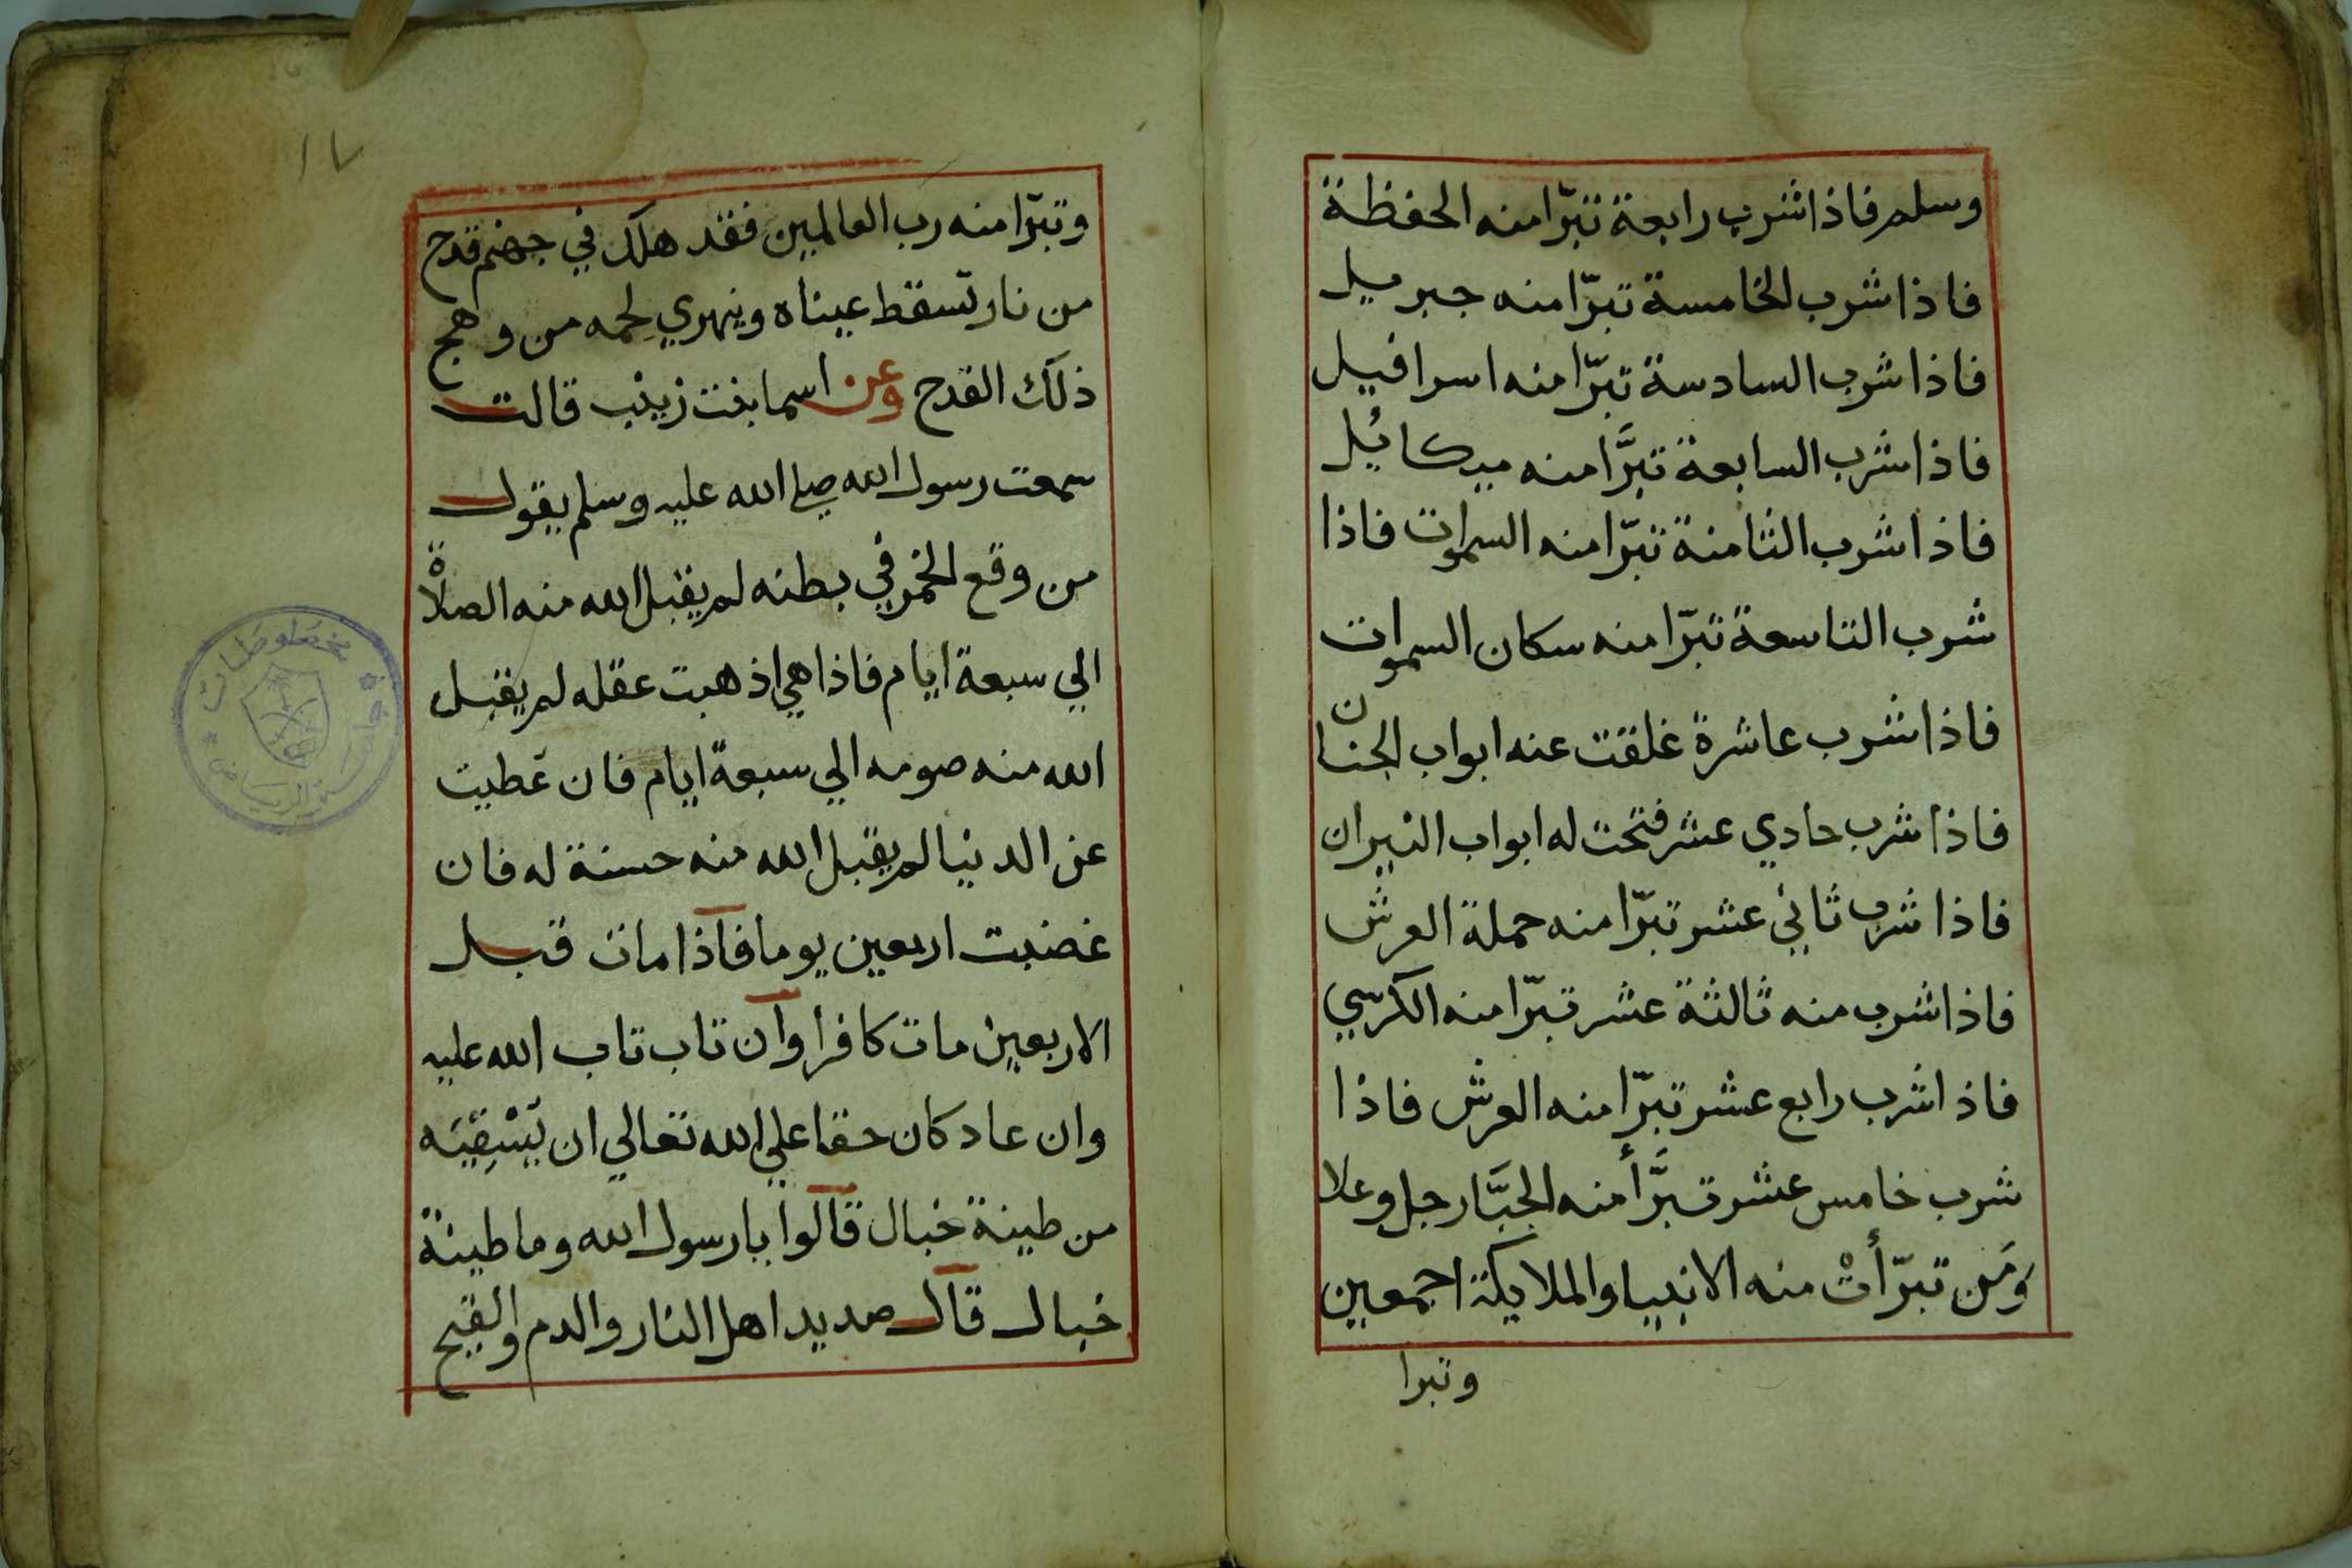 وسلم فاذا شرب رابعة تبرّا منه الحفظة
فاذا شرب الخامسة تبرّا منه جبريل
فاذا شرب السادسة تبرّا منه اسرافيل
فاذا شرب السابعة تبرَّا منه ميكائيل
فاذا شرب الثامنة تبرّا منه السموات فاذا
شرب التاسعة تبرّا منه سكان السموات
فاذا شرب عاشرة غلقت عنه ابواب الجنان
فاذا شرب حادي عشر فتحت له ابواب النيران
فاذا شرب ثاني عشر تبرّا منه حملة العرش
فاذا شرب منه ثالثة عشر تبرّا منه الكرسي
فاذا شرب رابع عشر تبرّا منه العرش فاذا
شرب خامس عشر تبرَّأ منه الجبَّار جل وعلا
وَمَن تبرّأتْ منه الانبيا والملايكة اجمعين
وتبرا
١٧
وتبرّا منه رب العالمين فقد هلك في جهنم قدح
من نار تسقط عيناه وينهري لحمه من وهج
ذلك القدح وعن اسما بنت زينب قالت
سمعت رسول الله صلي الله عليه وسلم يقول
من وقع الخمر في بطنه لم يقبل الله منه الصلاة
الي سبعة ايام فاذا هي اذهبت عقله لم يقبل
الله منه صومه الي سبعة ايام فان غطيت
عن الدنيا لم يقبل الله منه حسنة له فان
غضبت اربعين يوما فاذا مات قبل
الاربعين مات كافرا وان تاب تاب الله عليه
وان عاد كان حقا علي الله تعالي ان يَسْقِيَه
من طينة خبال قالوا يا رسول الله وما طينة
خبال قال صديد اهل النار والدم والقيح
مخطوطات